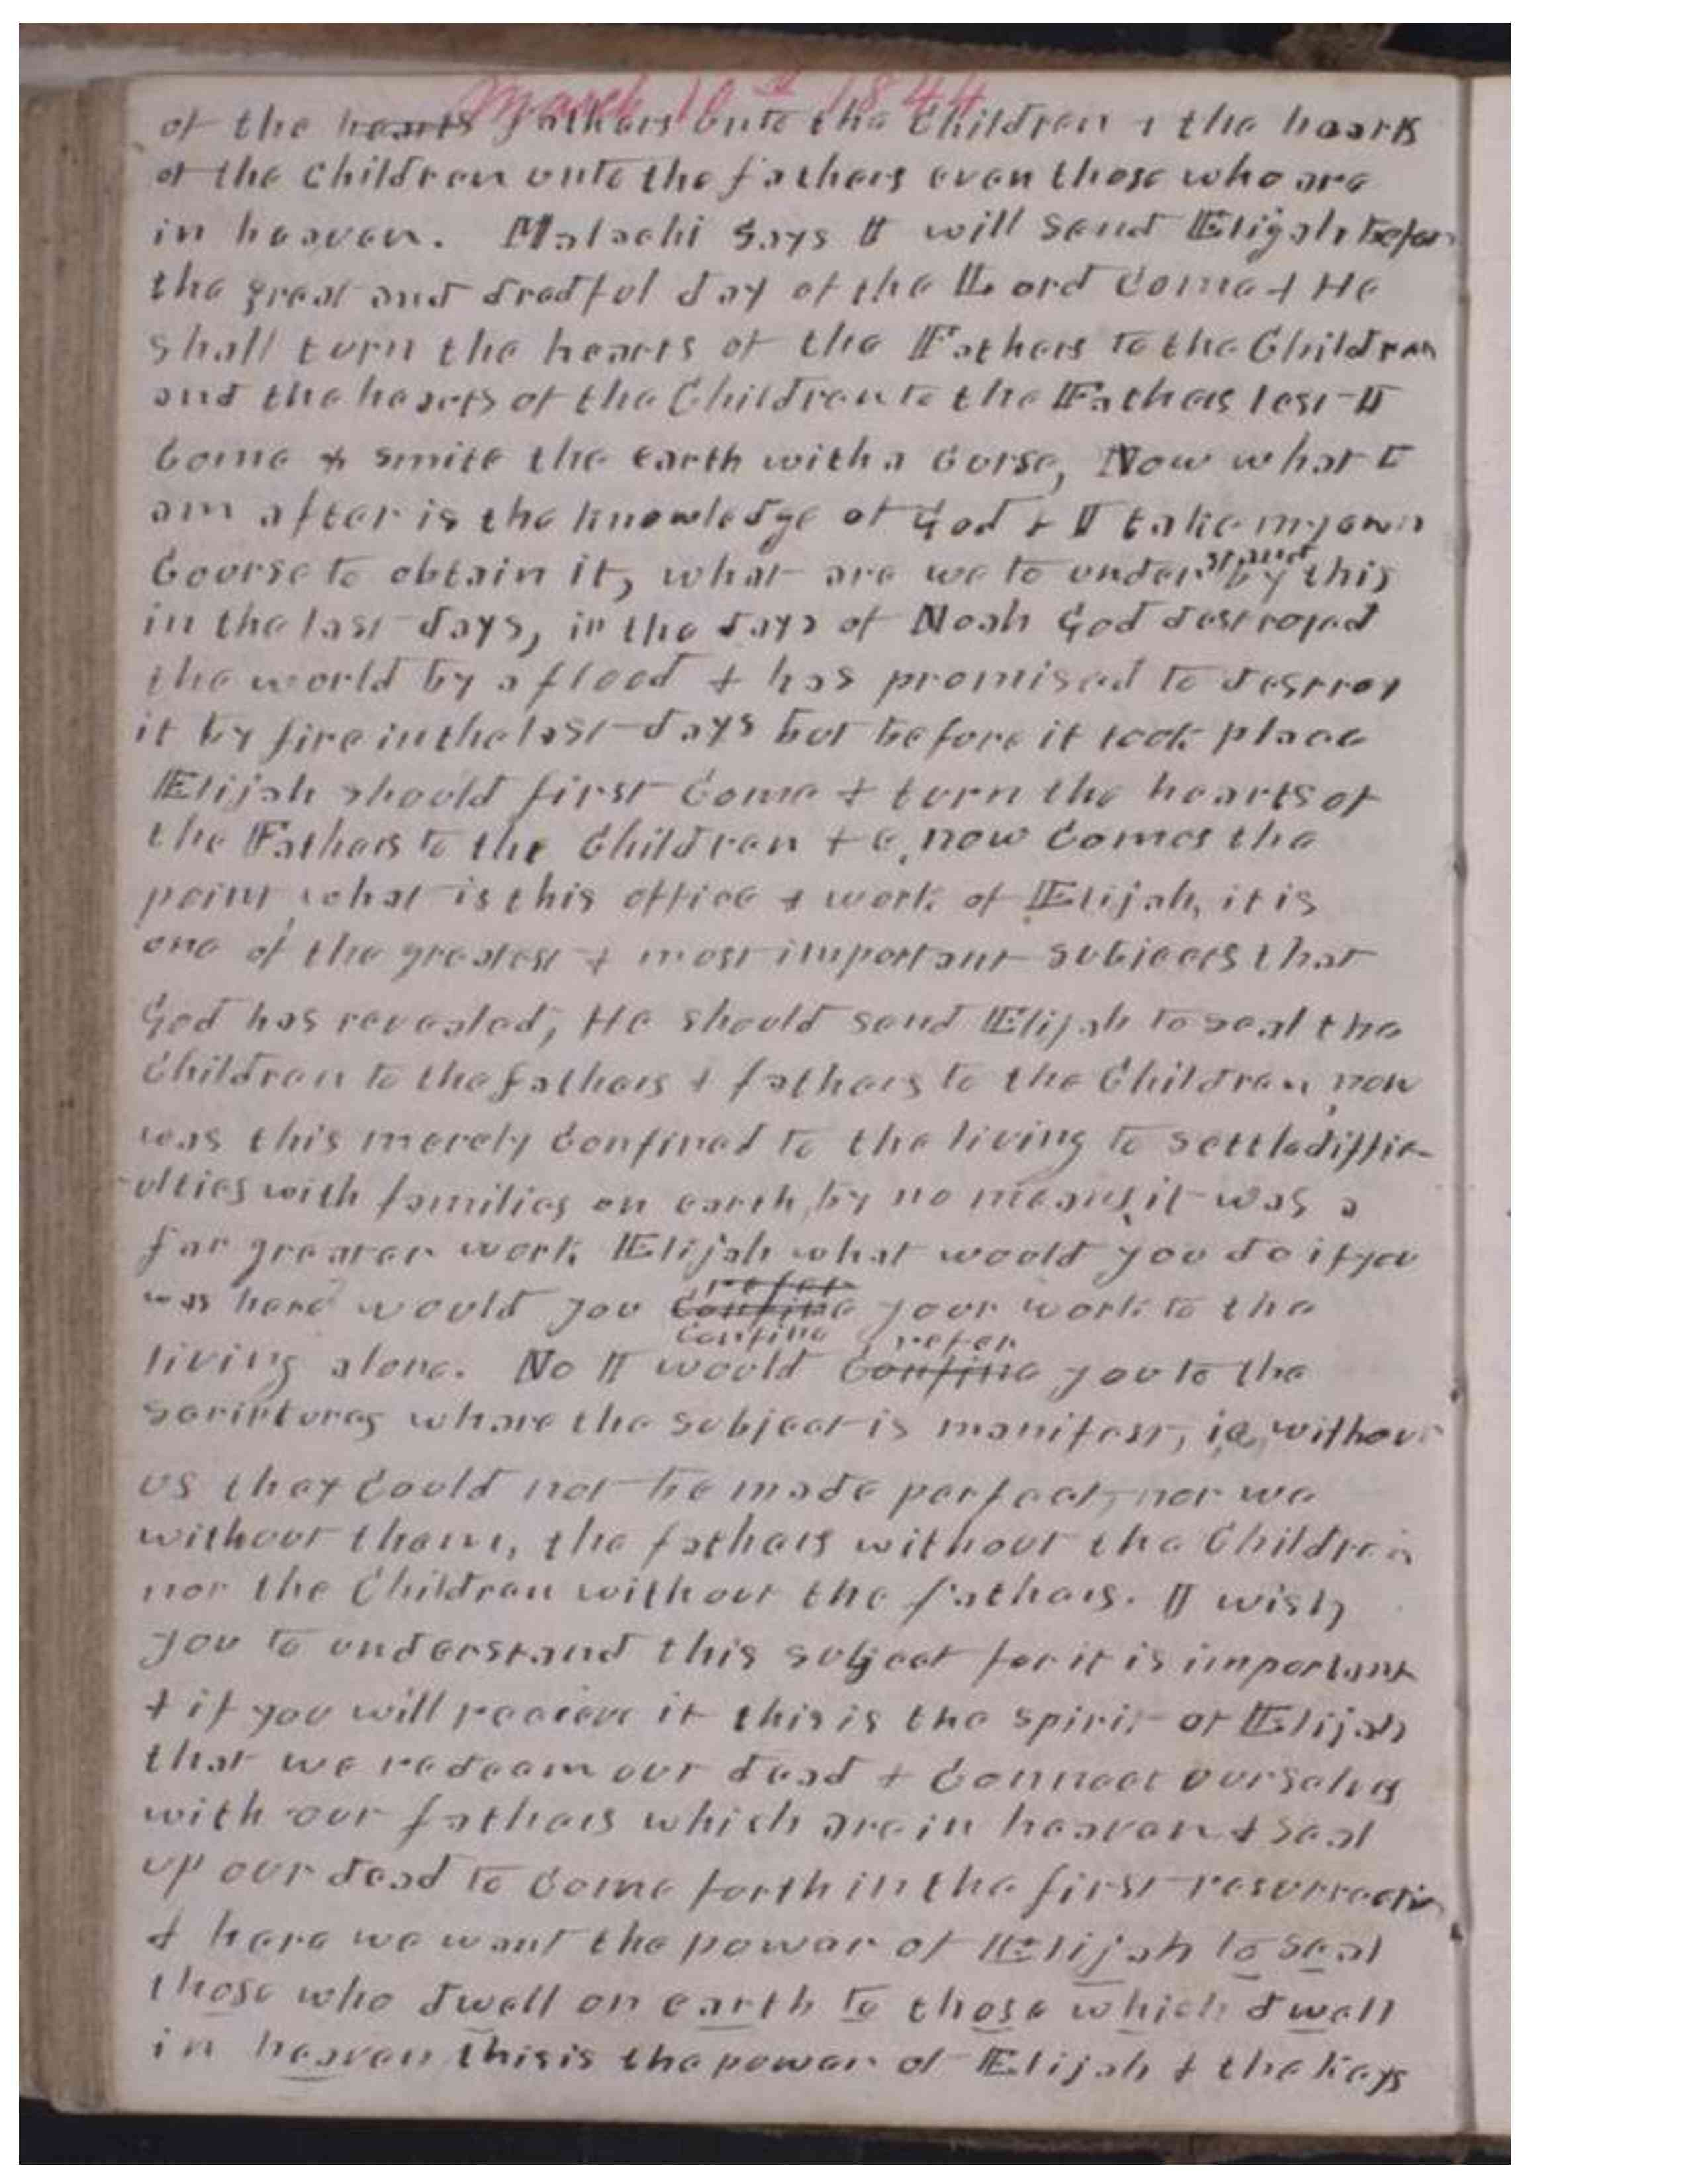 March 10th 1844
of the hearts fathers unto the Children & the hearts
of the Children unto the fathers even those who are
in heaven. Malachi says I will send Elijah before
the great and dredful day of the Lord Come & He
shall turn the hearts of the Fathers to the Children
and the hearts of the Children to the Fathers lest I
Come & smite the earth with a Curse, Now what I
am after is the knowledge of God & I take my own
Course to obtain it, what are we to understand by this
in the last days, in the days of Noah God destroyed
the world by a flood & has promised to destroy
it by fire in the last days but before it took place
Elijah should first Come & turn the hearts of
the Fathers to the Children &c, now Comes the
point, what is this office & work of Elijah, it is
one of the greatest & most important subjects that
God has revealed, He should send Elijah to seal the
Children to the fathers & fathers to the Children, now
was this merely Confined to the living to settle diffic-
-ulties with families on earth, by no means, it was a
far greater work. Elijah what would you do if you
was here would you refer Confine Confine your work to the
living alone. No I would refer Confine you to the
scriptures where the subject is manifest, ie, without
us they Could not be made perfect, nor we
without them, the fathers without the Children
nor the Children without the fathers. I wish
you to understand this subject for it is important
& if you will receieve it this is the spirit of Elijah
that we redeem our dead & Connect ourselves
with our fathers which are in heaven & seal
up our dead to Come forth in the first resurrection
& here we want the power of Elijah to seal
those who dwell on earth to those which dwell
in heaven this is the power of Elijah & the keys